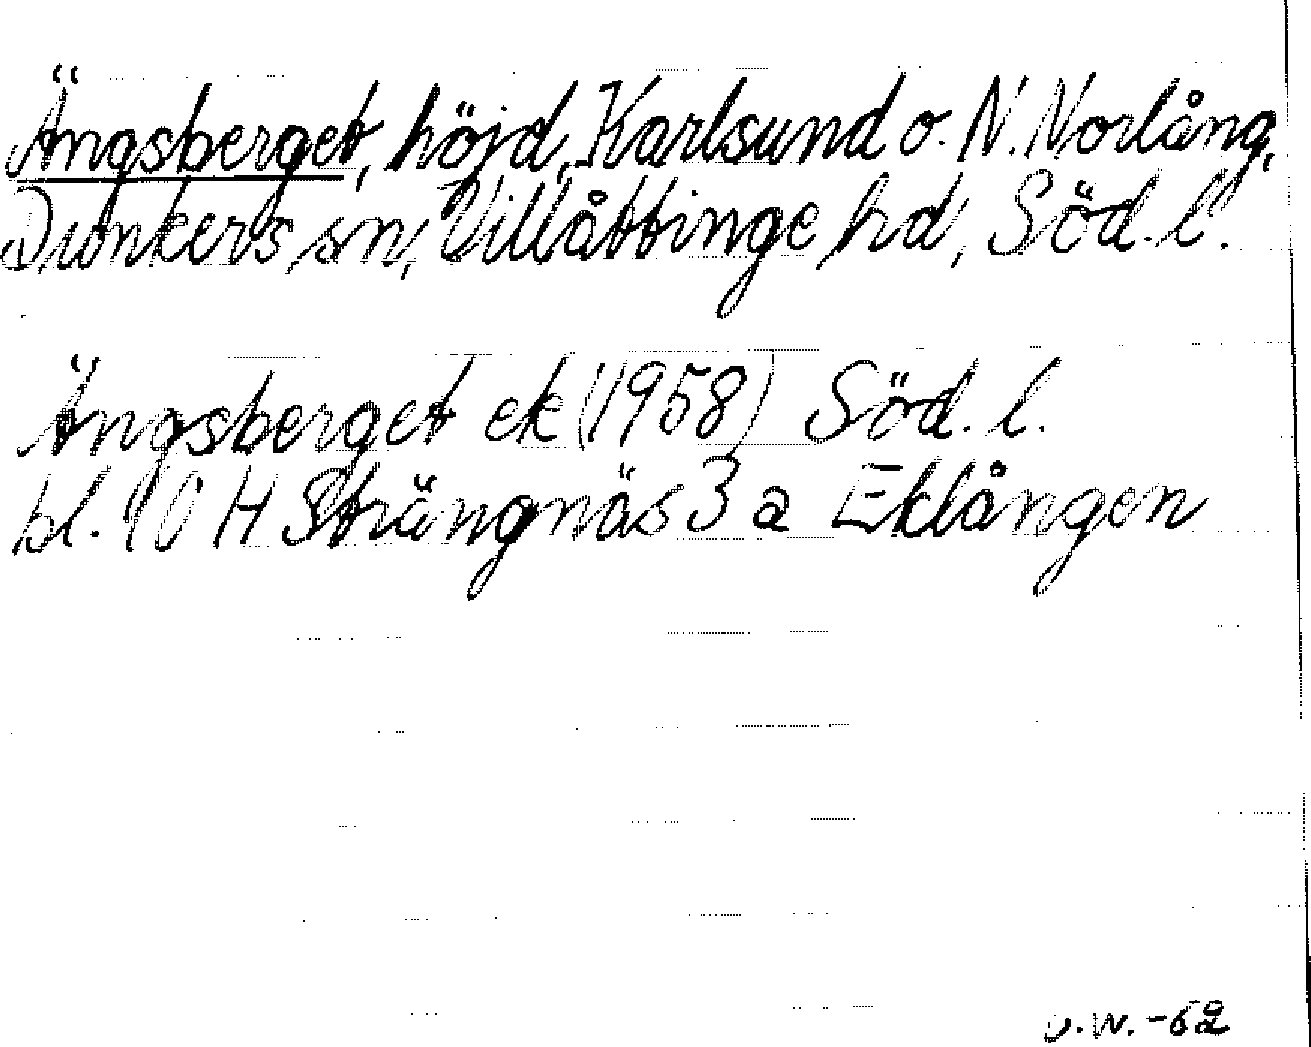 Ängsberget, höjd, Karlsund o. N. Norlång,
Dunkers sn, Villåttinge hd, Söd. l.
Ängsberget ek (1958) Söd. l.
bl. 10 H Strängnäs 3 a Eklången
v.W. -62